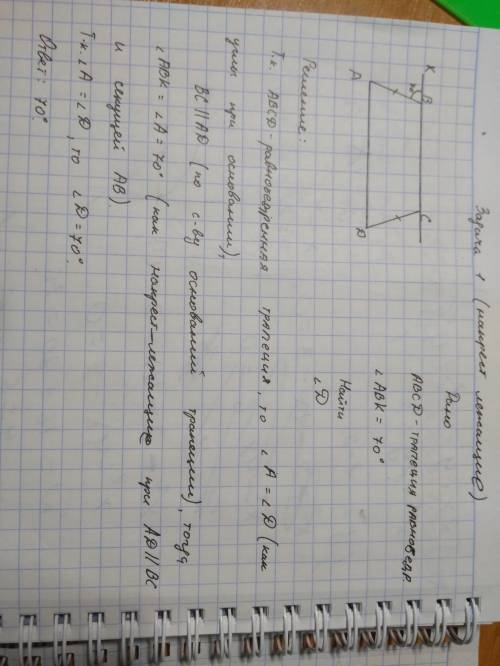 Задача 1 (накрест лежащие)
Дано
ABCD - трапеция равнобедр
∠ABK = 70°
Найти
∠D
K
B
C
A
D
Решение:
Т.к. ABCD - равнобедренная трапеция, то ∠A = ∠D (как
углы при основании),
BC || AD (по с-ву оснований трапеции), тогда
∠ABK = ∠A = 70° (как накрест-лежащие при AD || BC
и секущей AB)
Т.к. ∠A = ∠D, то ∠D = 70°.
Ответ: 70°